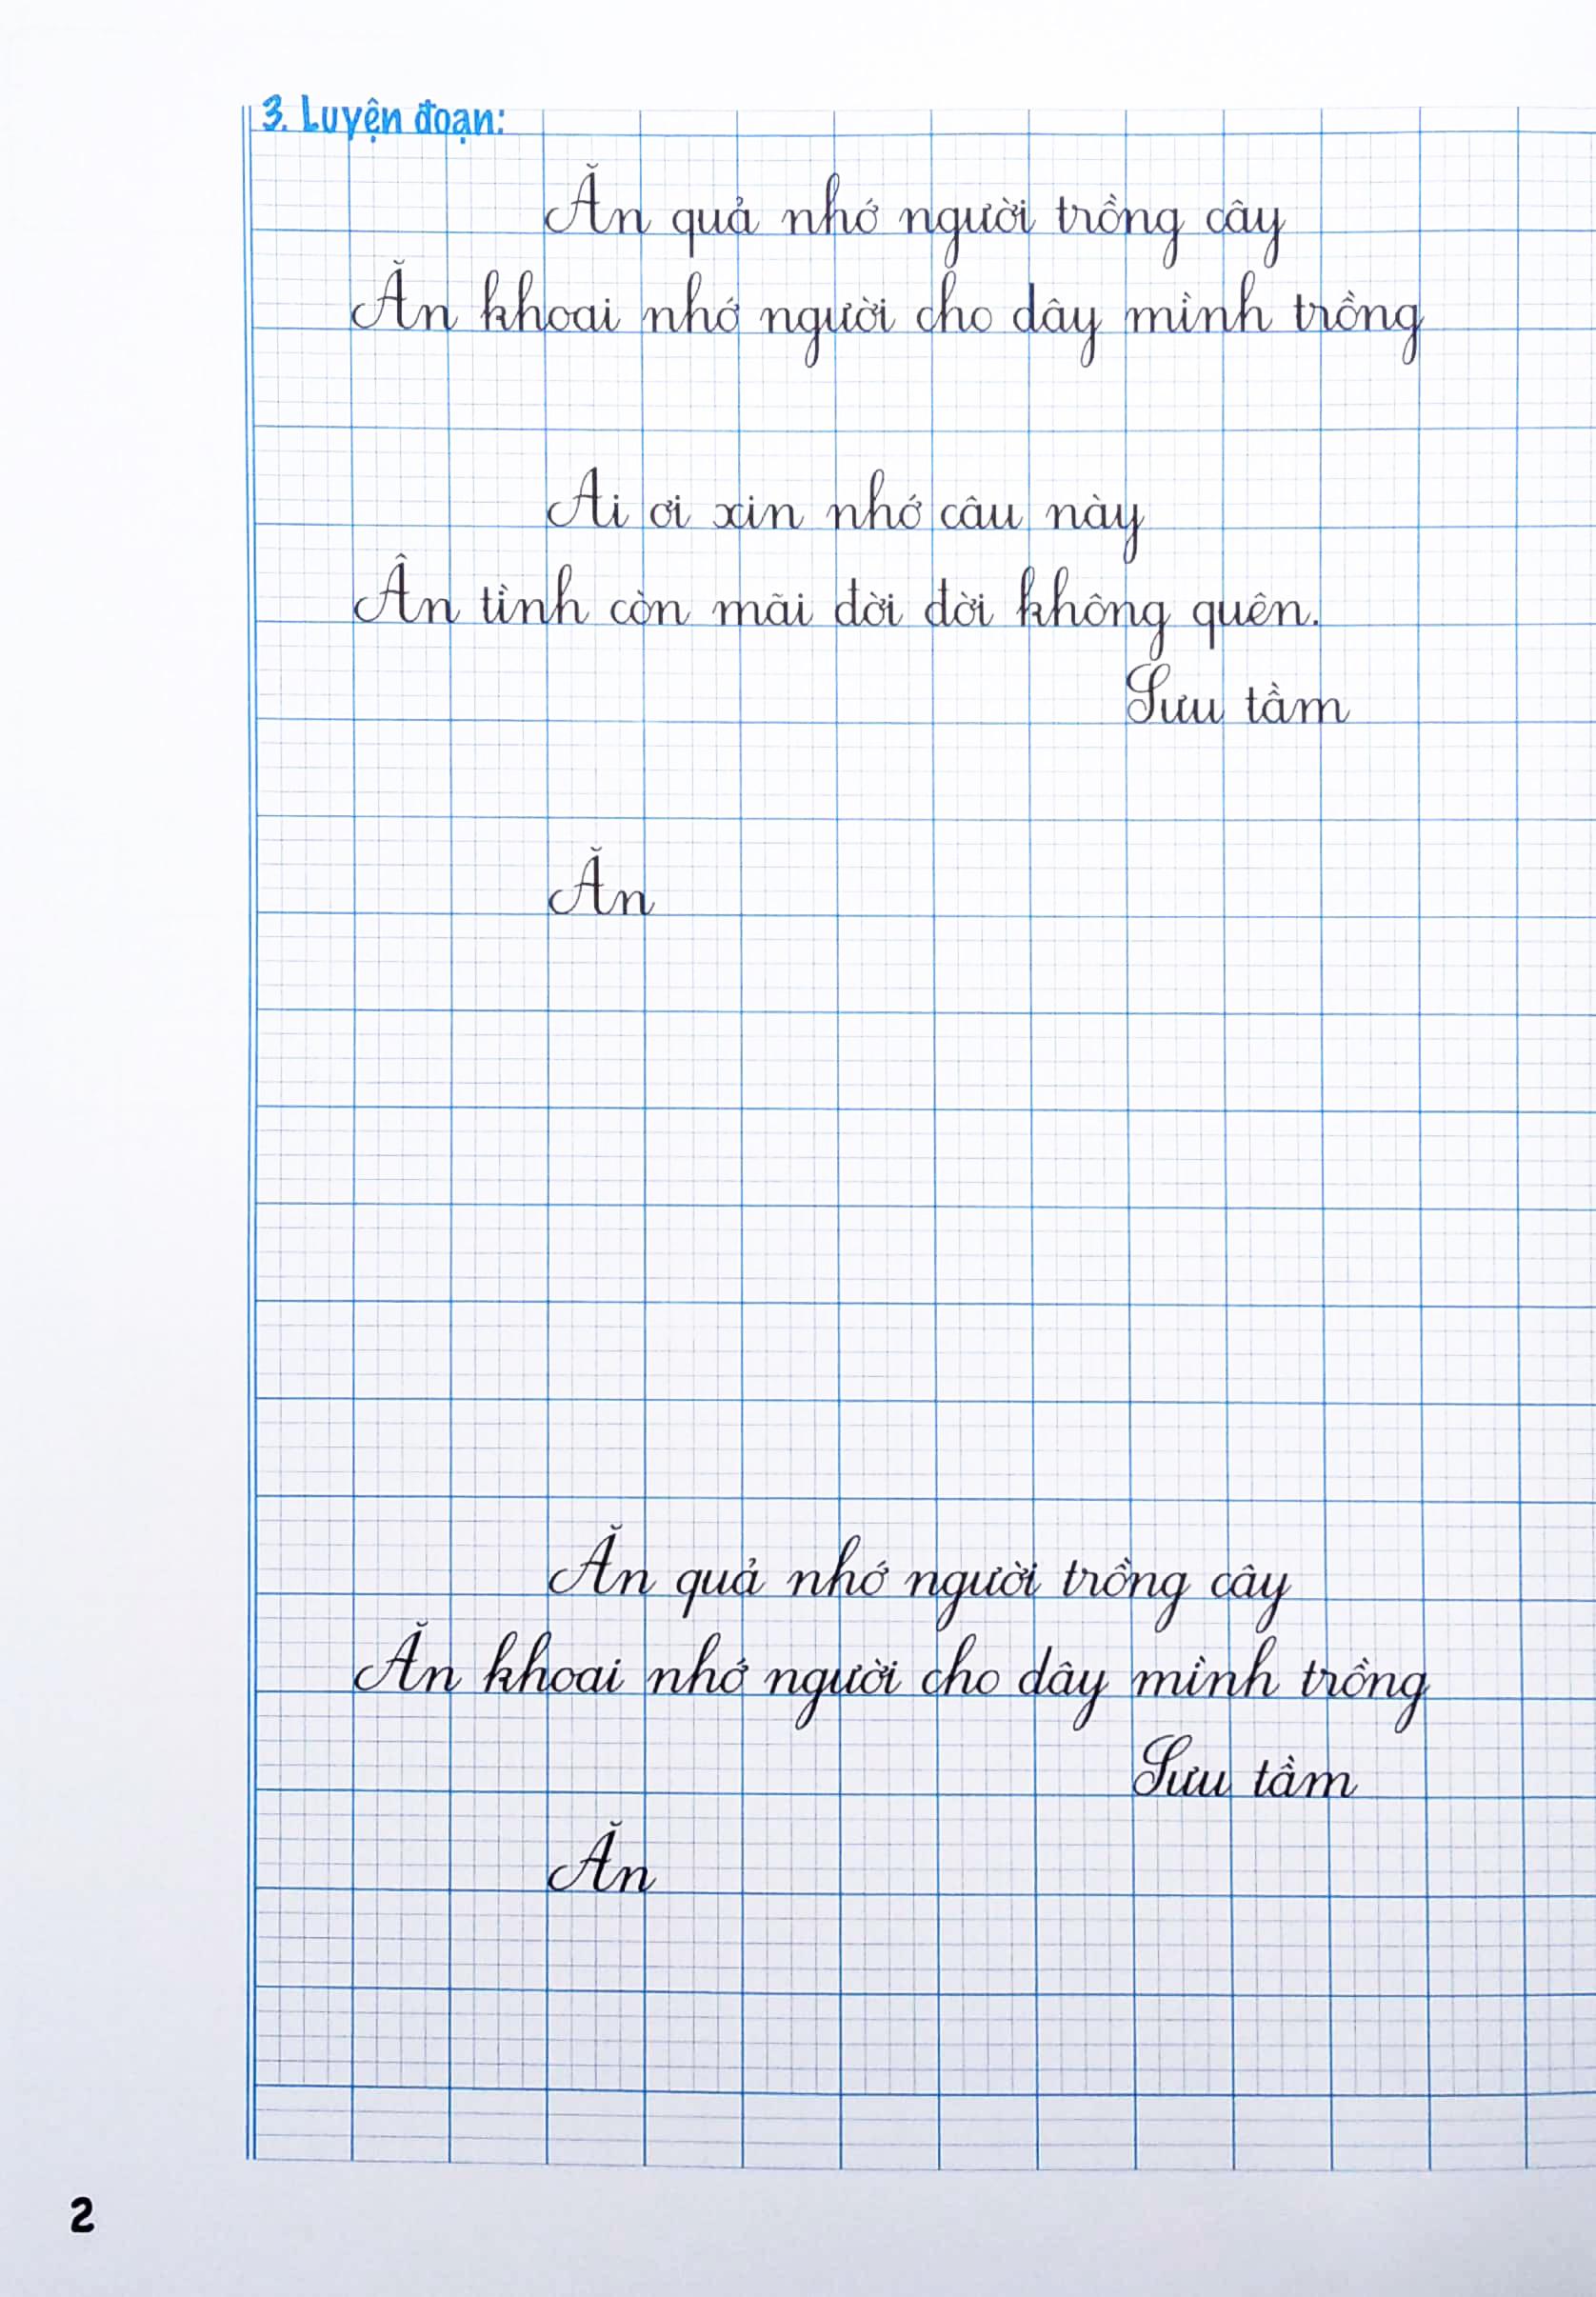 3. Luyện đoạn:
Ăn quả nhớ người trồng cây
Ăn khoai nhớ người cho dây mình trồng
Ai ơi xin nhớ câu này
Ân tình còn mãi đời đời không quên.
Sưu tầm
Ăn
Ăn quả nhớ người trồng cây
Ăn khoai nhớ người cho dây mình trồng
Sưu tầm
Ăn
2